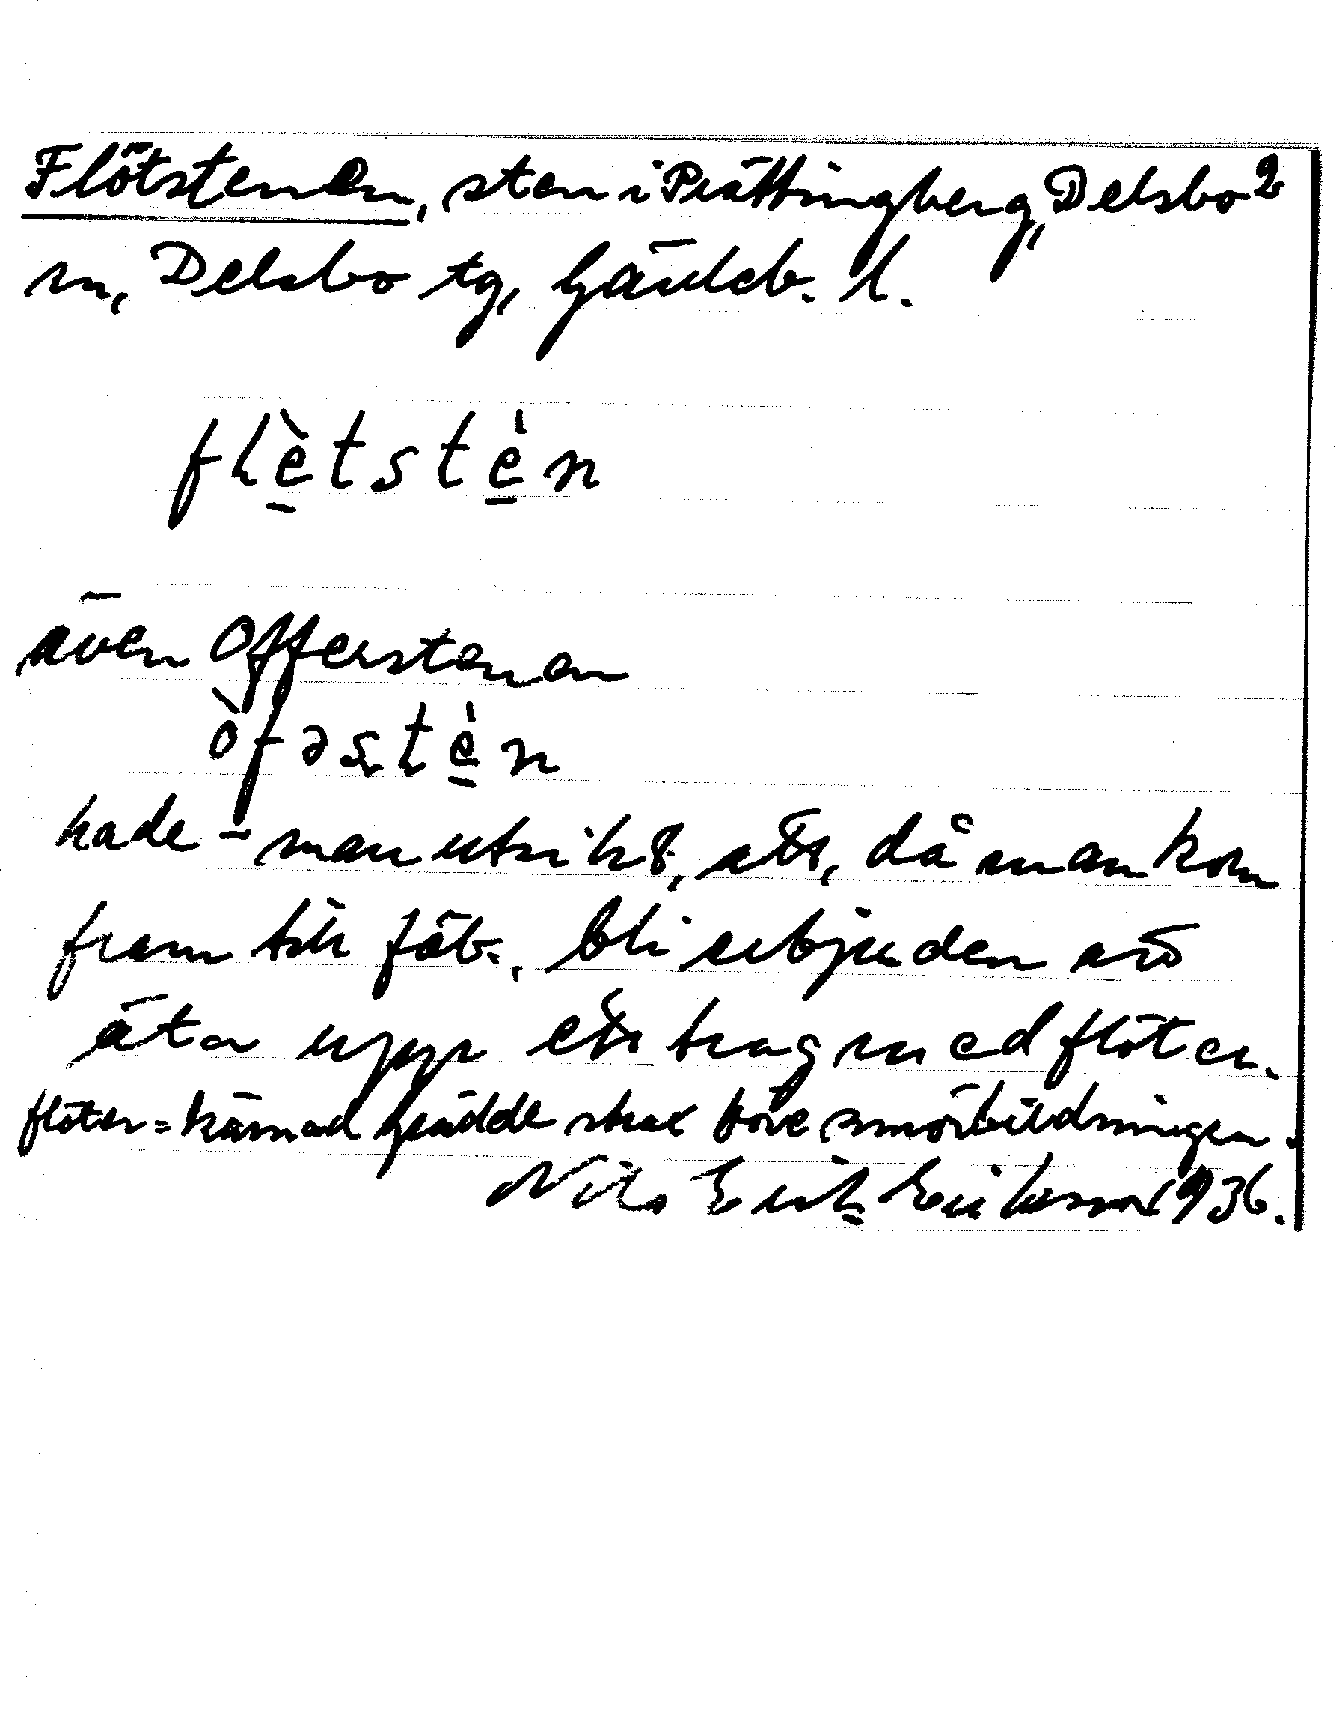 Flötstenen, sten i Prättingberg, Delsbo 2
sn, Delsbo tg, Gävleb. l.
flètstèn
även Offerstenen
òfəstèn
hade man uträttat, då man kom
fram till fäb., bli erbjuden att
äta upp ett trag med flöter.
flöter = kärnad grädde strax före smörbildningen.
Nils Erik Eriksson 1936.